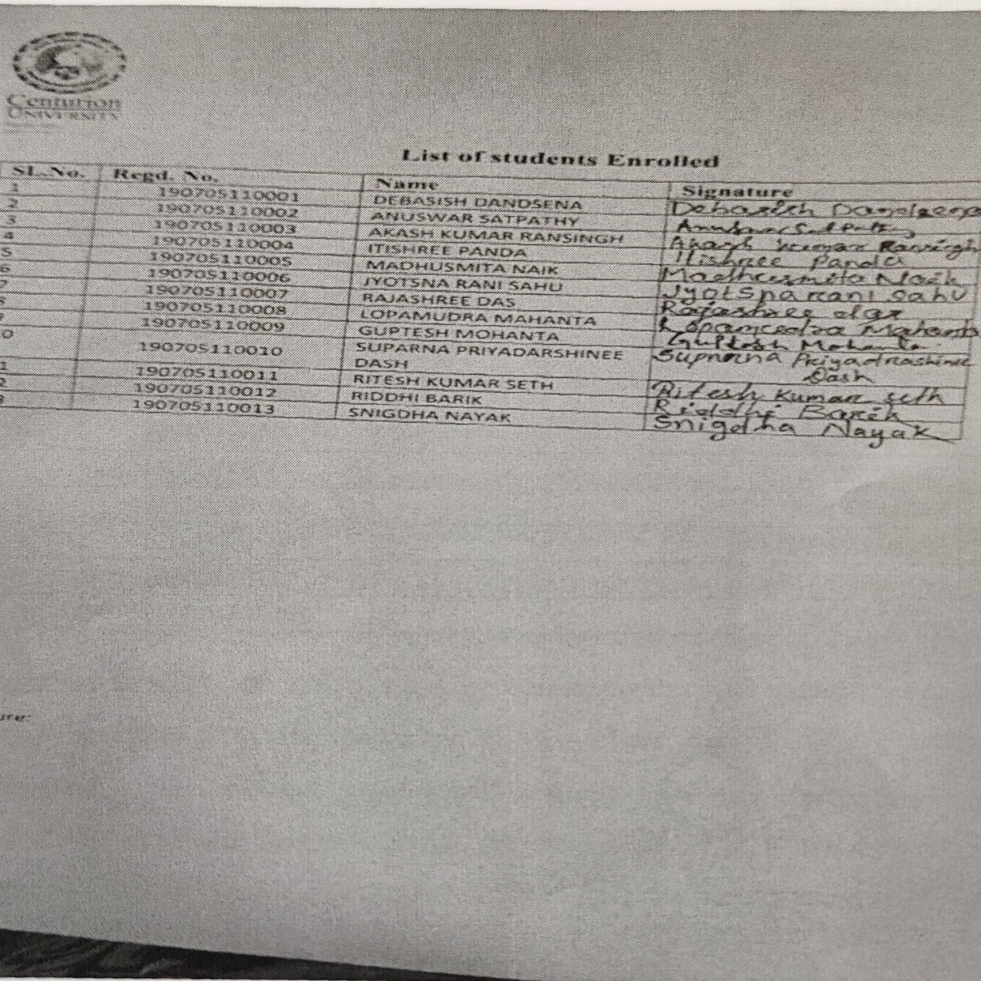 Centurion
UNIVERSITY
List of students Enrolled
SL.No. Regd. No. Name Signature
1 190705110001 DEBASISH DANDSENA Debasish Dandsena
2 190705110002 ANUSWAR SATPATHY Anuswar Satpathy
3 190705110003 AKASH KUMAR RANSINGH Akash Kumar Ransingh
4 190705110004 ITISHREE PANDA Itishree Panda
5 190705110005 MADHUSMITA NAIK Madhusmita Naik
6 190705110006 JYOTSNA RANI SAHU Jyotsna rani sahu
7 190705110007 RAJASHREE DAS Rajashree das
8 190705110008 LOPAMUDRA MAHANTA Lopamudra Mahanta
9 190705110009 GUPTESH MOHANTA Guptesh Mohanta
0 190705110010 SUPARNA PRIYADARSHINEE Suparna Priyadrashinee
DASH Dash
1 190705110011 RITESH KUMAR SETH Ritesh Kumar seth
2 190705110012 RIDDHI BARIK Riddhi Barik
3 190705110013 SNIGDHA NAYAK Snigdha Nayak
ure: